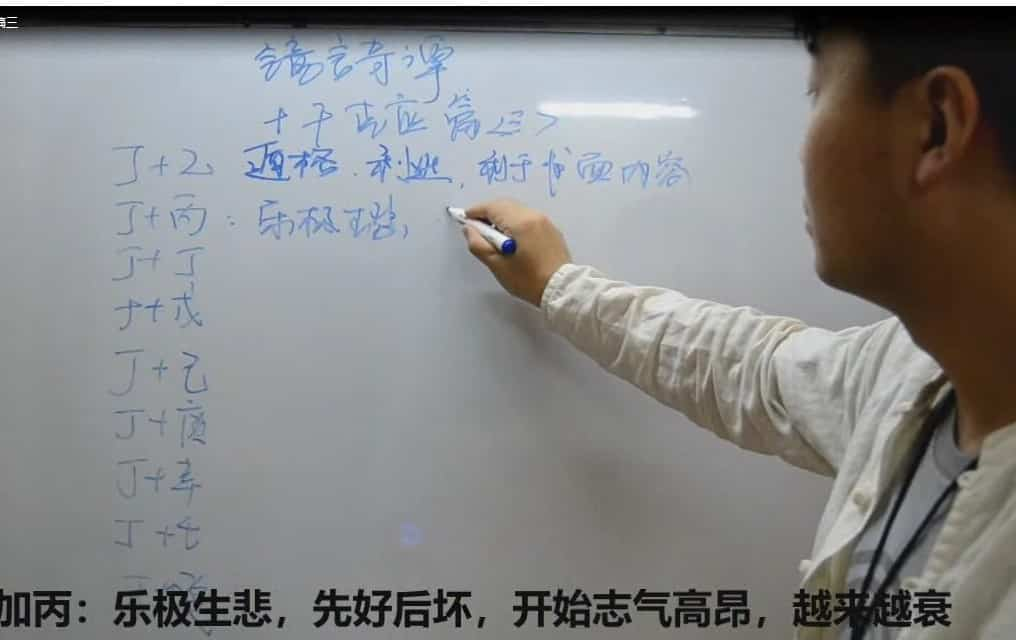 三
奇谭
十干克应篇<三>
丁+乙 利于书面内容
丁+丙：乐极生悲，
丁+丁
丁+戊
丁+己
丁+庚
丁+辛
丁+壬
加丙：乐极生悲，先好后坏，开始志气高昂，越来越衰